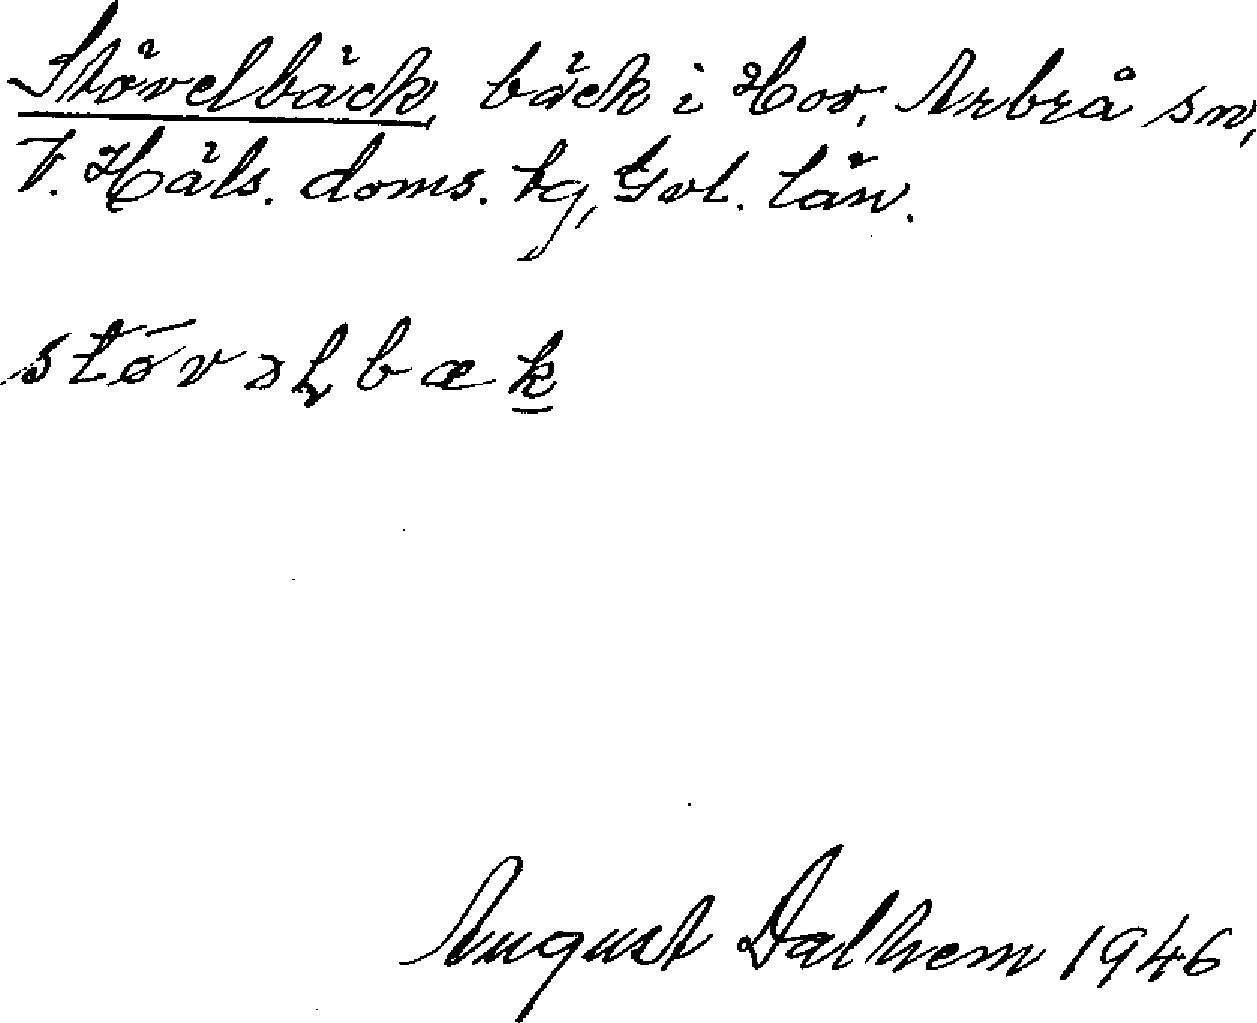 Stövelbäck, bäck i Hov, Arbrå sn,
V. Häls. doms. tg, Gvl. län.
stǿvəɭbæk̲
August Dalhem 1946